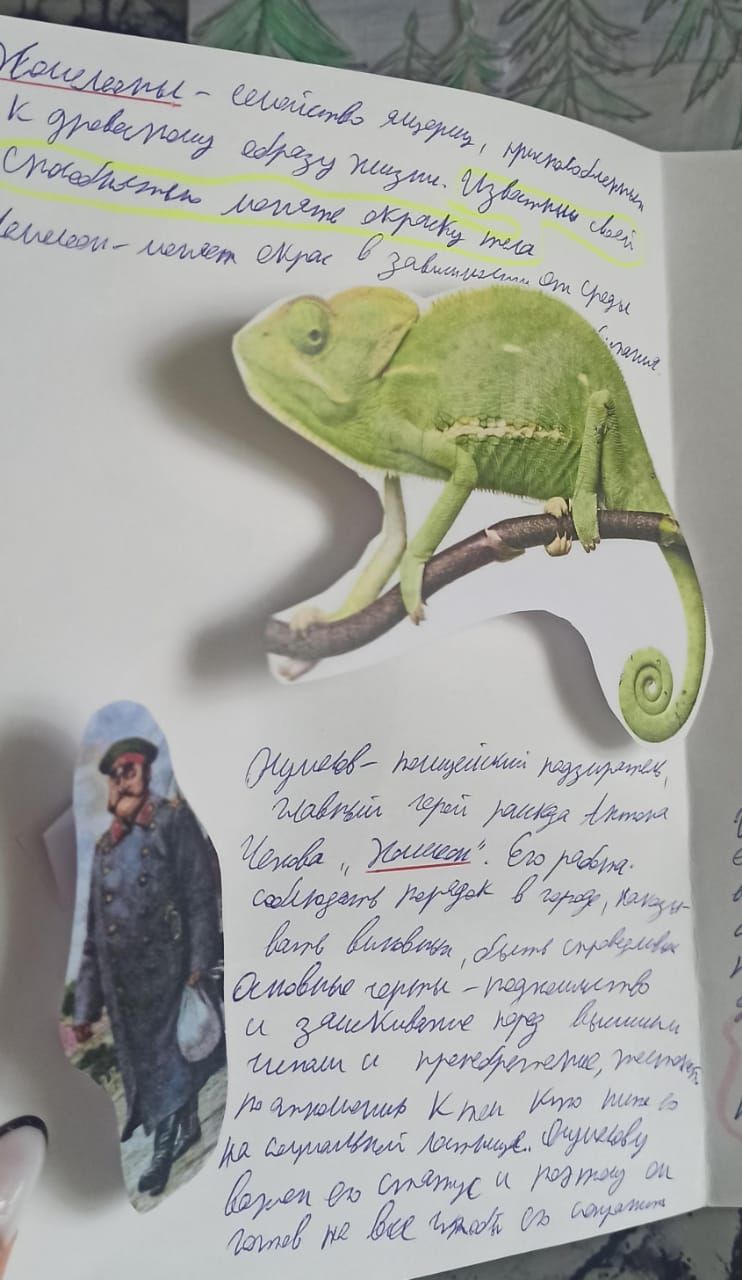 Хамелеоны - семейство ящериц, приспособленных
к древесному образу жизни. Известны своей
способностью менять окраску тела
Хамелеон - меняет окрас в зависимости от среды
обитания.
Очумелов - полицейский надзиратель,
главный герой рассказа Антона
Чехова „Хамелеон". Его работа -
соблюдать порядок в городе, наказы-
вать виновных, быть справедливым
Основные черты - подхалимство
и заискивание перед высшими
чинами и пренебрежение, жестокость
по отношению к тем кто ниже его
на социальной лестнице. Очумелову
важен его статус и поэтому он
готов на все чтобы его сохранить